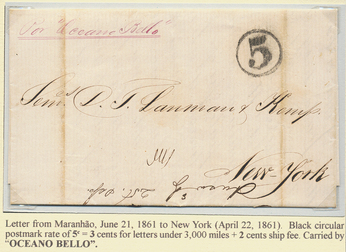 Por "Oceano Bello"
5
Senrs. D. T. Lanman & Kemp.
New-York
Letter from Maranhão, June 21, 1861 to New York (April 22, 1861). Black circular
postmark rate of 5c = 3 cents for letters under 3,000 miles + 2 cents ship fee. Carried by
"OCEANO BELLO".